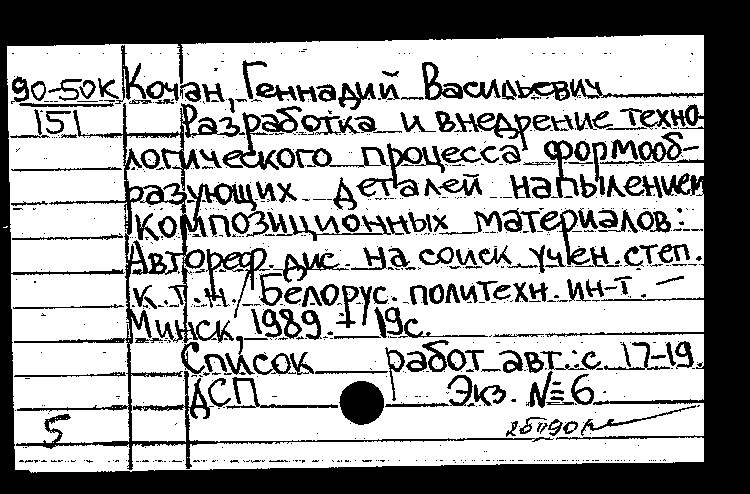 90-50К Кочан, Геннадий Васильевич
151 Разработка и внедрение техно-
логического процесса формооб-
разующих деталей напылением
композиционных материалов:
Автореф. дис. на соиск. учен. степ.
к.т.н. / Белорус. политехн. ин-т. —
Минск, 1989. — 19с.
Список работ авт.: с. 17-19.
ДСП Экз. №6
5